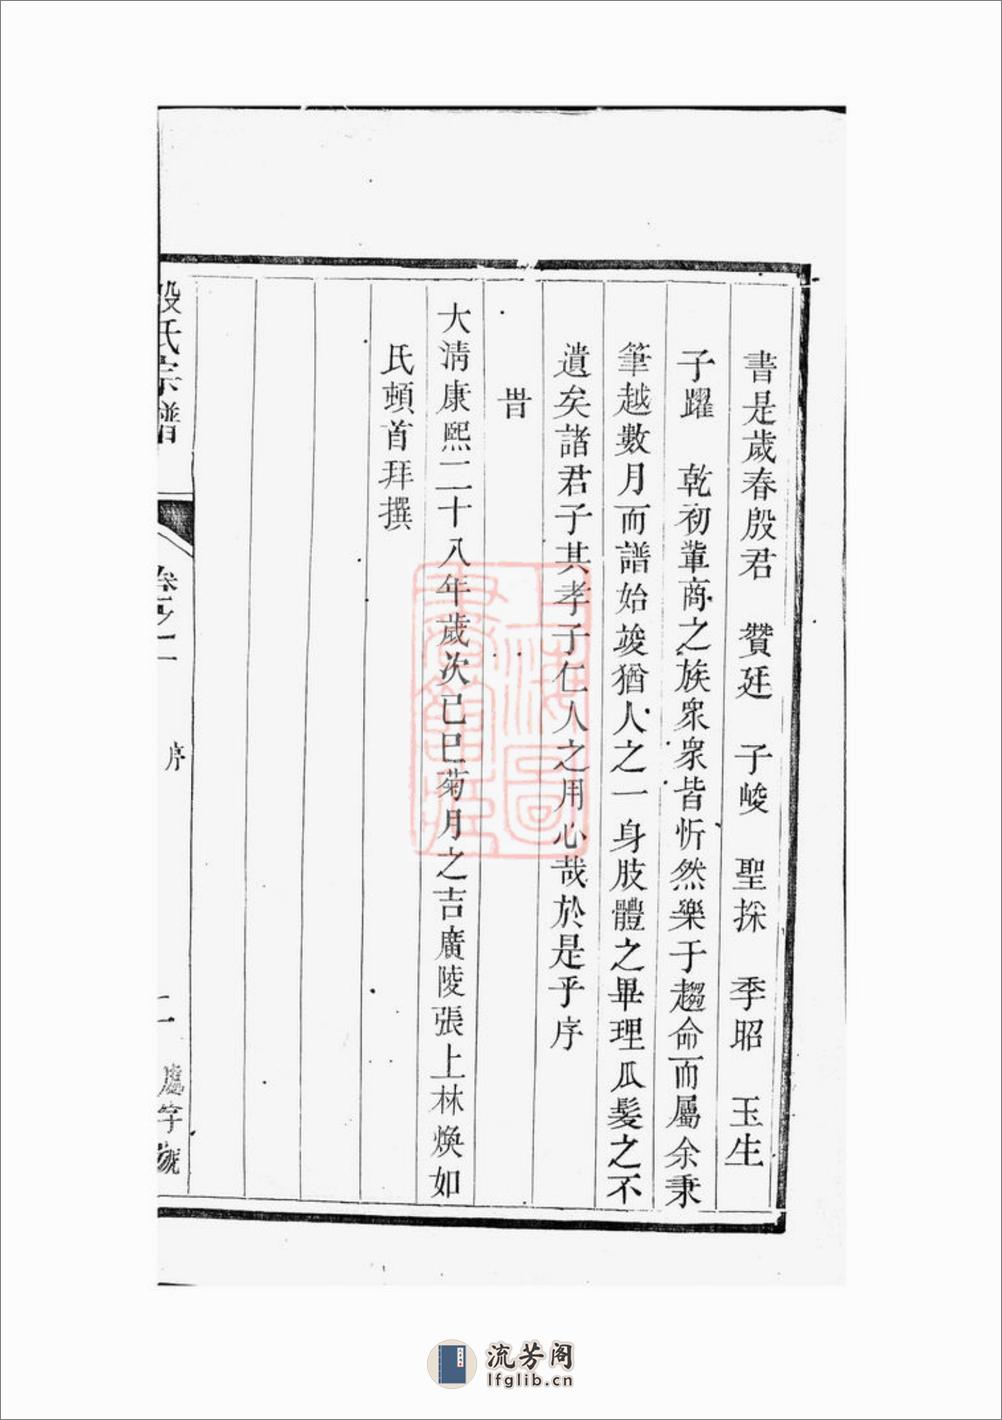 書是歲春殷君　贊廷　子峻　聖採　季昭　玉生
子躍　乾初輩商之族衆衆皆忻然樂于趨命而屬余秉
筆越數月而譜始竣猶人之一身肢體之畢理瓜髮之不
遺矣諸君子其孝子仁人之用心哉於是乎序
旹
大淸康熙二十八年歲次己巳菊月之吉廣陵張上林煥如
氏頓首拜撰
殷氏宗譜
卷之一
序
二
字號
上海圖書館藏
流芳阁
lfglib.cn